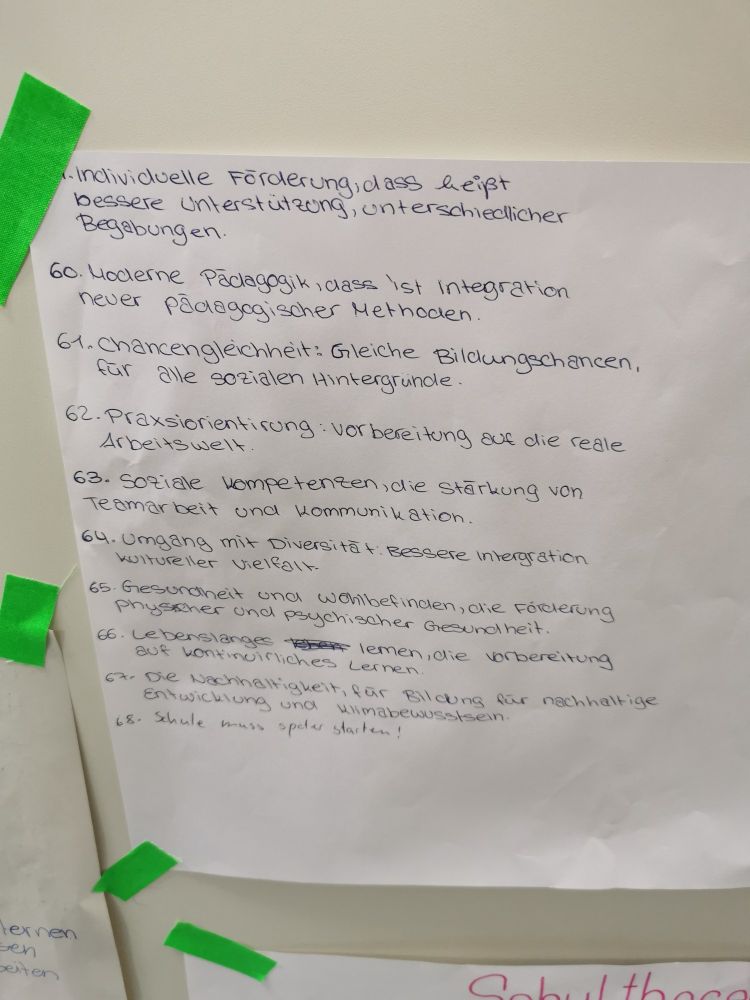 . Individuelle Förderung, dass heißt
bessere Unterstützung, unterschiedlicher
Begabungen.
60. Moderne Pädagogik, dass ist Integration
neuer pädagogischer Methoden.
61. Chancengleichheit: Gleiche Bildungschancen,
für alle sozialen Hintergründe.
62. Praxsiorientirung: Vorbereitung auf die reale
Arbeitswelt.
63. Soziale Kompetenzen, die Stärkung von
Teamarbeit und Kommunikation.
64. Umgang mit Diversität: Bessere Intergration
kultureller Vielfalt.
65. Gesundheit und Wohlbefinden, die Förderung
physischer und psychischer Gesundheit.
66. Lebenslanges lernen, die Vorbereitung
auf kontinuirliches Lernen.
67. Die Nachhaltigkeit, für Bildung für nachhaltige
Entwicklung und Klimabewusstsein.
68. Schule muss später starten!
lernen
sen
beiten